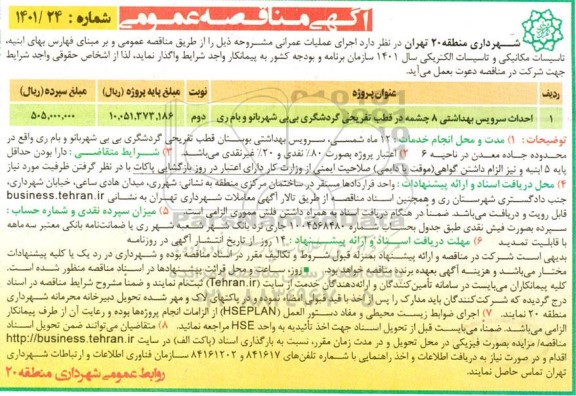 آگهی مناقصه عمومی
شماره : ۲۴ /۱۴۰۱
شهرداری منطقه ۲۰ تهران در نظر دارد اجرای عملیات عمرانی مشروحه ذیل را از طریق مناقصه عمومی و بر مبنای فهارس بهای ابنیه،
تاسیسات مکانیکی و تاسیسات الکتریکی سال ۱۴۰۱ سازمان برنامه و بودجه کشور به پیمانکار واجد شرایط واگذار نماید، لذا از اشخاص حقوقی واجد شرایط
جهت شرکت در مناقصه دعوت بعمل می‌آید.
ردیف عنوان پروژه نوبت مبلغ پروژه (ریال) مبلغ سپرده (ریال)
۱ احداث سرویس بهداشتی ۸ چشمه در قطب تفریحی گردشگری بی بی شهربانو و بام ری دوم ۱۰،۰۵۱،۳۷۳،۱۸۶ ۵۰۵،۰۰۰،۰۰۰
توضیحات: ۱) مدت و محل انجام خدمات: ۱۲ ماه شمسی، سرویس بهداشتی بوستان قطب تفریحی گردشگری بی بی شهربانو و بام ری واقع در
محدوده جاده معدن در ناحیه ۶ ۲) اعتبار پروژه بصورت ۸۰٪ نقدی و ۲۰٪ غیرنقدی می‌باشد. ۳) شرایط متقاضی: دارا بودن حداقل
پایه ۵ ابنیه و نیز الزام داشتن گواهی (موقت یا دایمی) صلاحیت ایمنی از وزارت کار دارای اعتبار در روز بازگشایی پاکات با در نظر گرفتن ظرفیت مورد نیاز
۴) محل دریافت اسناد و ارائه پیشنهادات: واحد قراردادها مستقر در ساختمان مرکزی منطقه به نشانی: شهرری، میدان هادی ساعی، خیابان شهرداری،
جنب دادگستری شهرستان ری و همچنین اسناد مناقصه از طریق تالار آگهی معاملات شهرداری تهران به نشانی business.tehran.ir
قابل رویت و دریافت می‌باشد. ضمناً در هنگام دریافت اسناد به همراه داشتن مهر ممهوری الزامی است. ۵) میزان سپرده نقدی و شماره حساب:
سپرده بصورت فیش نقدی طبق جدول بحساب شماره جاری نزد بانک شهر ری یا ضمانتنامه بانکی معتبر سه ماهه
با قابلیت تمدید ۶) مهلت دریافت اسناد و ارائه پیشنهاد: ۱۴ روز از تاریخ انتشار آگهی در روزنامه
بدیهی است شرکت در مناقصه و ارائه پیشنهاد بمنزله قبول شروط و تکالیف مقرر در اسناد مناقصه بوده و شهرداری در رد یک یا کلیه پیشنهادات
مختار می‌باشد و هزینه آگهی بعهده برنده مناقصه خواهد بود. روز، ساعت، محل قرائت پیشنهادها در اسناد مناقصه منظور شده است.
کلیه پیمانکاران می‌بایست در سامانه تأمین‌کنندگان و ارائه‌دهندگان خدمت (Business.Tehran.ir) ثبت‌نام نمایند و ضمناً مشروح شرایط مناقصه در اسناد
درج گردیده که شرکت‌کنندگان باید مدارک را پس از تکمیل در پاکتهای لاک و مهر شده تحویل دبیرخانه محرمانه شهرداری
منطقه ۲۰ نمایند. ۷) اجرای ضوابط زیست محیطی و مفاد دستور العمل (HSEPLAN) از الزامات انجام پروژه‌ها بوده و رعایت آن از طرف پیمانکار
الزامی می‌باشد. ضمناً، می‌بایست قبل از تحویل اسناد جهت اخذ تأئیدیه به واحد HSE مراجعه نمائید. ۸) متقاضیان می‌توانند ضمن تحویل اسناد
مناقصه/ مزایده بصورت فیزیکی در محل تحویل و در مدت زمان مقرر، نسبت به بارگذاری اسناد (پاکت الف) در سایت http://business.Tehran.ir
اقدام و در صورت نیاز به دریافت اطلاعات و اخذ راهنمایی با شماره تلفن‌های ۸۴۱۶۱۷ و ۸۴۱۶۱۲۰۲ سازمان فناوری اطلاعات و ارتباطات شهرداری
تهران تماس حاصل نمایند.
روابط عمومی شهرداری منطقه ۲۰